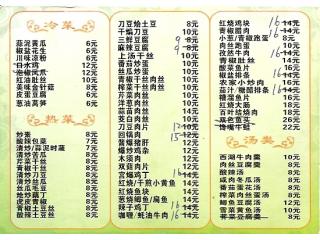 冷菜
蒜泥黄瓜 6元
椒盐花生 6元
川味凉粉 6元
白水鸡 12元
泡椒凤爪 12元
红油肚丝 10元
美味金针菇 8元
皮蛋豆腐 8元
葱油莴笋 6元
热菜
炒素 8元
酸辣包菜 7元
清炒/蒜泥时蔬 8元
清炒苦瓜 8元
芹菜干丝 8元
青椒干丝 8元
清炒刀豆 8元
清炒丝瓜 8元
丝瓜毛豆 8元
地三鲜 8元
麻婆豆腐 8元
虎皮青椒 8元
青椒土豆丝 8元
酸辣土豆丝 8元
刀豆烩土豆 8元
干煸刀豆 10元
三鲜豆腐 9 8元
麻辣豆腐 9 8元
上汤干丝 10元
番茄炒蛋 10元
丝瓜炒蛋 10元
青椒炒蛋 10元
韭菜炒蛋 10元
榨菜肉丝 10元
芹菜肉丝 10元
青椒肉丝 10元
洋葱肉丝 10元
蒜苗肉丝 10元
茭白肉丝 10元
刀豆肉片 12 10元
回锅肉 15元
酱爆猪肝 12元
爆炒鸡杂 12元
木须肉 12元
莴苣肉片 12元
宫爆鸡丁 16 14元
红烧/干煎小黄鱼 14元
红烧鱼块 14元
葱烤鲫鱼/扁鱼 14元
辣子鸡丁 16 14元
咖喱/蚝油牛肉 16 14元
红烧鸡块 16 14元
青椒腊肉 16 14元
小葱/青椒跑蛋 10元
肉末跑蛋 10元
孜然牛肉 16 14元
青椒肚丝 14元
酸菜鱼片 16元
椒盐排条 16 14元
农家小炒肉 14元
茄汁/糖醋排条 16 14元
糟溜鱼片 14元
红烧大肠 18元
百叶结烧肉 18元
22元
汤类
西湖牛肉羹 10元
肉丝豆腐羹 8元
酸辣汤 8元
咸肉冬瓜汤 8元
番茄蛋花汤 8元
榨菜肉丝蛋汤 8元
三鲜汤 8元
雪菜黄鱼汤 10元
8元